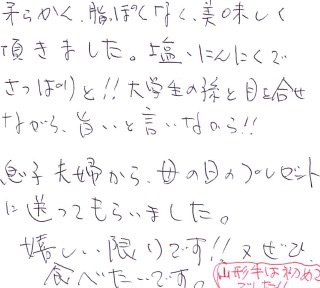 柔らかく、脂っぽくなく、美味しく
頂きました。塩、にんにくで
さっぱりと!!大学生の孫と目を合せ
ながら、旨いと言いながら!!
息子夫婦から、母の日のプレゼント
に送ってもらいました。
嬉しい限りです!!又ぜひ
食べたいです。
山形牛は初めて
でした!!